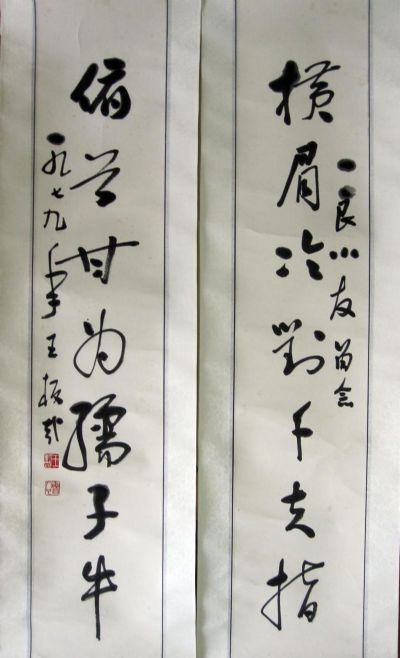 横眉冷對千夫指
一良小友留念
俯首甘为孺子牛
一九七九年王振